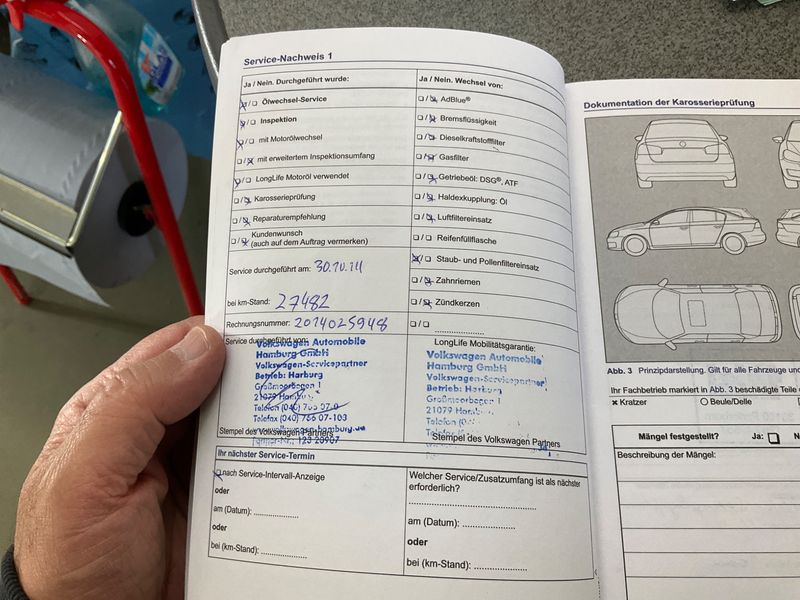 Service-Nachweis 1
Ja / Nein. Durchgeführt wurde:
Ölwechsel-Service
Inspektion
mit Motorölwechsel
mit erweitertem Inspektionsumfang
LongLife Motoröl verwendet
Karosserieprüfung
Reparaturempfehlung
Kundenwunsch
(auch auf dem Auftrag vermerken)
Service durchgeführt am: 30.10.14
bei km-Stand: 27482
Rechnungsnummer: 2014025948
Service durchgeführt von:
Volkswagen Automobile
Hamburg GmbH
Volkswagen-Servicepartner
Betrieb: Harburg
Großmoorbogen 1
21079 Hamburg
Telefon (040)
Telefax (040) 766 07-103
Stempel des Volkswagen Partners
Ja / Nein. Wechsel von:
AdBlue®
Bremsflüssigkeit
Dieselkraftstofffilter
Gasfilter
Getriebeöl: DSG®, ATF
Haldexkupplung: Öl
Luftfiltereinsatz
Reifenfüllflasche
Staub- und Pollenfiltereinsatz
Zahnriemen
Zündkerzen
LongLife Mobilitätsgarantie:
Volkswagen Automobile
Hamburg GmbH
Volkswagen-Servicepartner
Betrieb: Harburg
Großmoorbogen
21079
Stempel des Volkswagen Partners
Ihr nächster Service-Termin
nach Service-Intervall-Anzeige
oder
am (Datum):
oder
bei (km-Stand):
Welcher Service/Zusatzumfang ist als nächster
erforderlich?
am (Datum):
oder
bei (km-Stand):
Dokumentation der Karosserieprüfung
Abb. 3 Prinzipdarstellung. Gilt für alle Fahrzeuge
Ihr Fachbetrieb markiert in Abb. 3 beschädigte Teile
Kratzer Beule/Delle
Mängel festgestellt? Ja:
Beschreibung der Mängel: